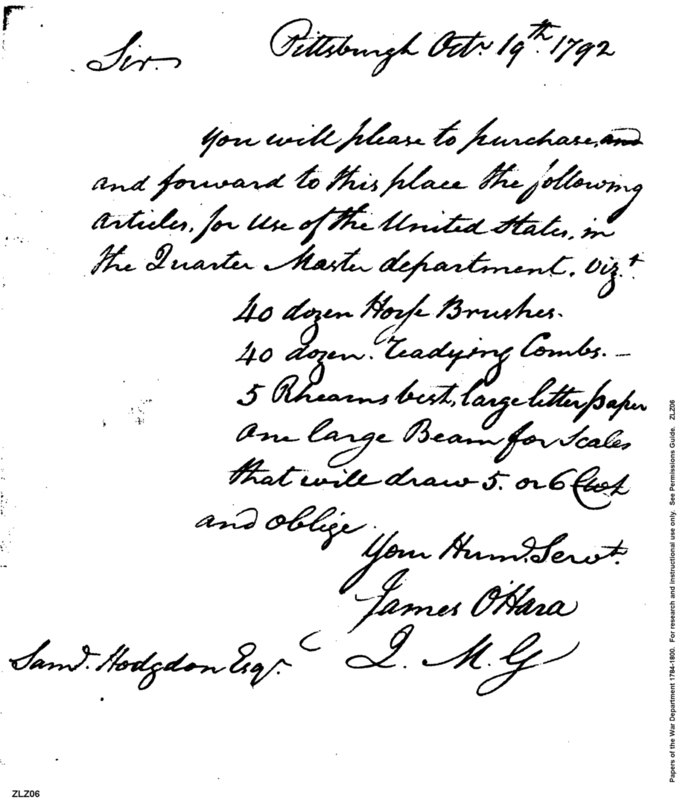 Pittsburgh Octr. 19th. 1792
Sir.
You will please to purchase, and
and forward to this place the following
articles, for use of the United States, in
the Quarter Master department. Vizt
40 dozen Horse Brushes.
40 dozen. Combs. –
5 Rheams best, large letter paper
one large Beam for Scales
that will draw 5. or 6 Cwt
and oblige.
Your Humd. Servt.
James O'Hara
Q. M. G
Saml. Hodgdon Esqr.
Papers of the War Department 1784-1800. For research and instructional use only. See Permissions Guide. ZLZ06
ZLZ06